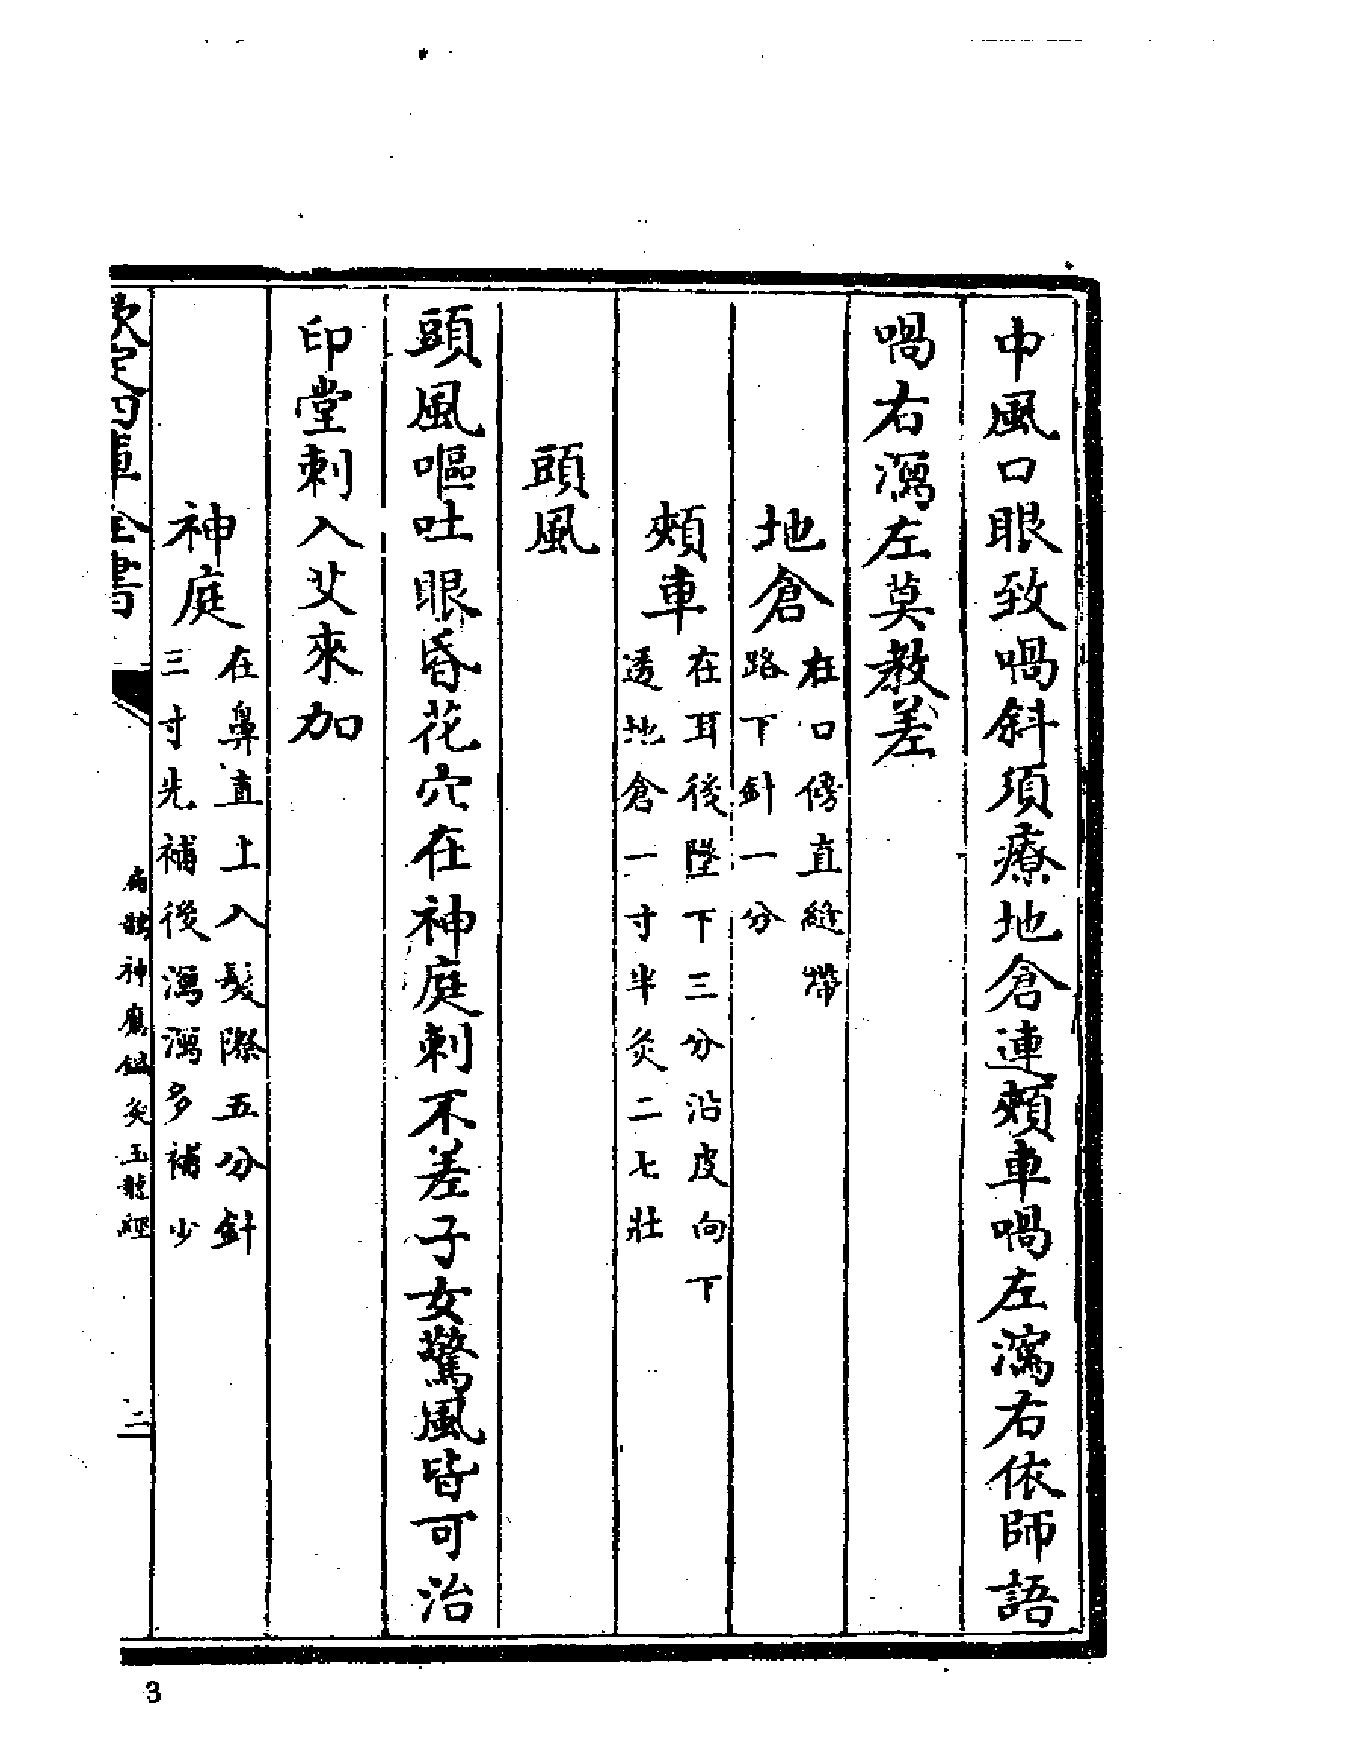 中風口眼致喎斜須療地倉連頰車喎左瀉右依師語
喎右瀉左莫教差
地倉
在口傍直縫帶
路下針一分
頰車
在耳後墜下三分沿皮向下
透地倉一寸半灸二七壯
頭風
頭風嘔吐眼昏花穴在神庭刺不差子女驚風皆可治
印堂刺入艾來加
神庭
在鼻直上入髮際五分針
三寸先補後瀉瀉多補少
欽定四庫全書
扁鵲神應鍼灸玉龍經
三
3